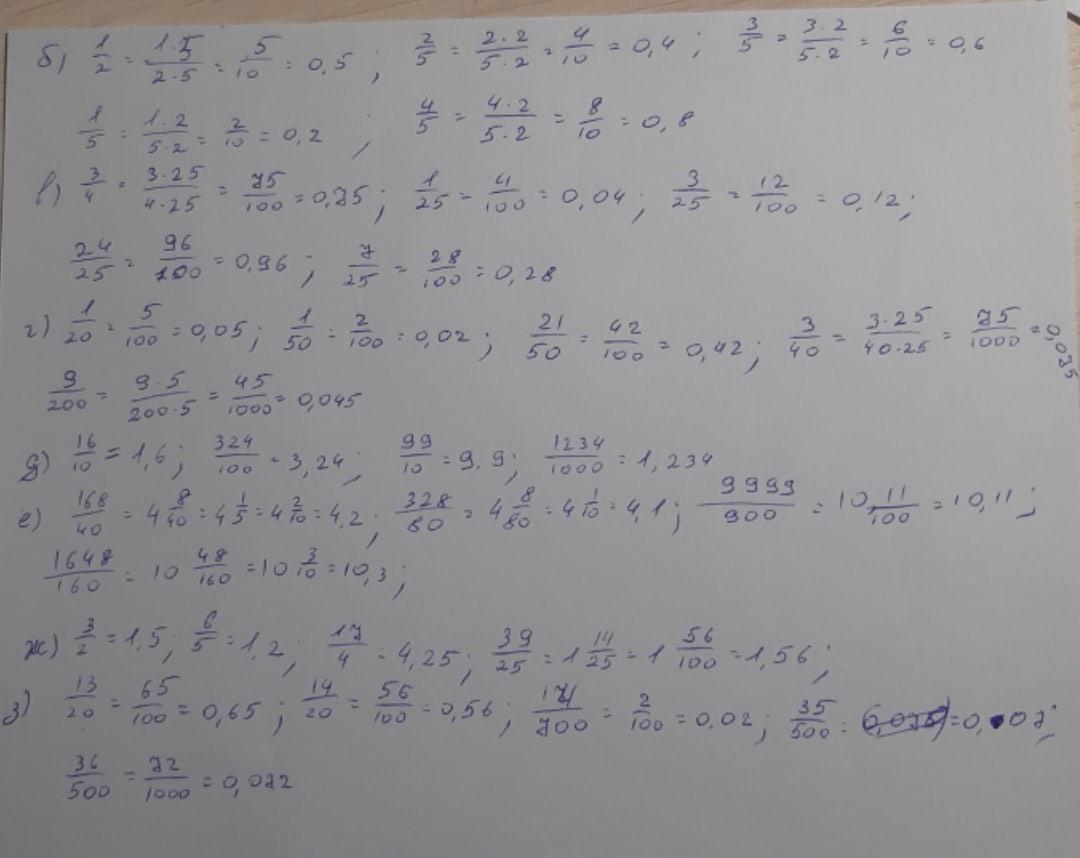 б) 1/2 = 1·5/2·5 = 5/10 = 0,5 ; 2/5 = 2·2/5·2 = 4/10 = 0,4 ; 3/5 = 3·2/5·2 = 6/10 = 0,6
1/5 = 1·2/5·2 = 2/10 = 0,2 ; 4/5 = 4·2/5·2 = 8/10 = 0,8
в) 3/4 = 3·25/4·25 = 75/100 = 0,75 ; 1/25 = 4/100 = 0,04 ; 3/25 = 12/100 = 0,12 ;
24/25 = 96/100 = 0,96 ; 7/25 = 28/100 = 0,28
г) 1/20 = 5/100 = 0,05 ; 1/50 = 2/100 = 0,02 ; 21/50 = 42/100 = 0,42 ; 3/40 = 3·25/40·25 = 75/1000 = 0,075
9/200 = 9·5/200·5 = 45/1000 = 0,045
д) 16/10 = 1,6 ; 324/100 = 3,24 ; 99/10 = 9,9 ; 1234/1000 = 1,234
е) 168/40 = 4 8/40 = 4 1/5 = 4 2/10 = 4,2 ; 328/80 = 4 8/80 = 4 1/10 = 4,1 ; 9999/900 = 10 11/100 = 10,11 ;
1648/160 = 10 48/160 = 10 3/10 = 10,3 ;
ж) 3/2 = 1,5 ; 6/5 = 1,2 ; 17/4 = 4,25 ; 39/25 = 1 14/25 = 1 56/100 = 1,56 ;
з) 13/20 = 65/100 = 0,65 ; 14/20 = 56/100 = 0,56 ; /700 = 2/100 = 0,02 ; 35/500 = 0,07 ;
36/500 = 72/1000 = 0,072